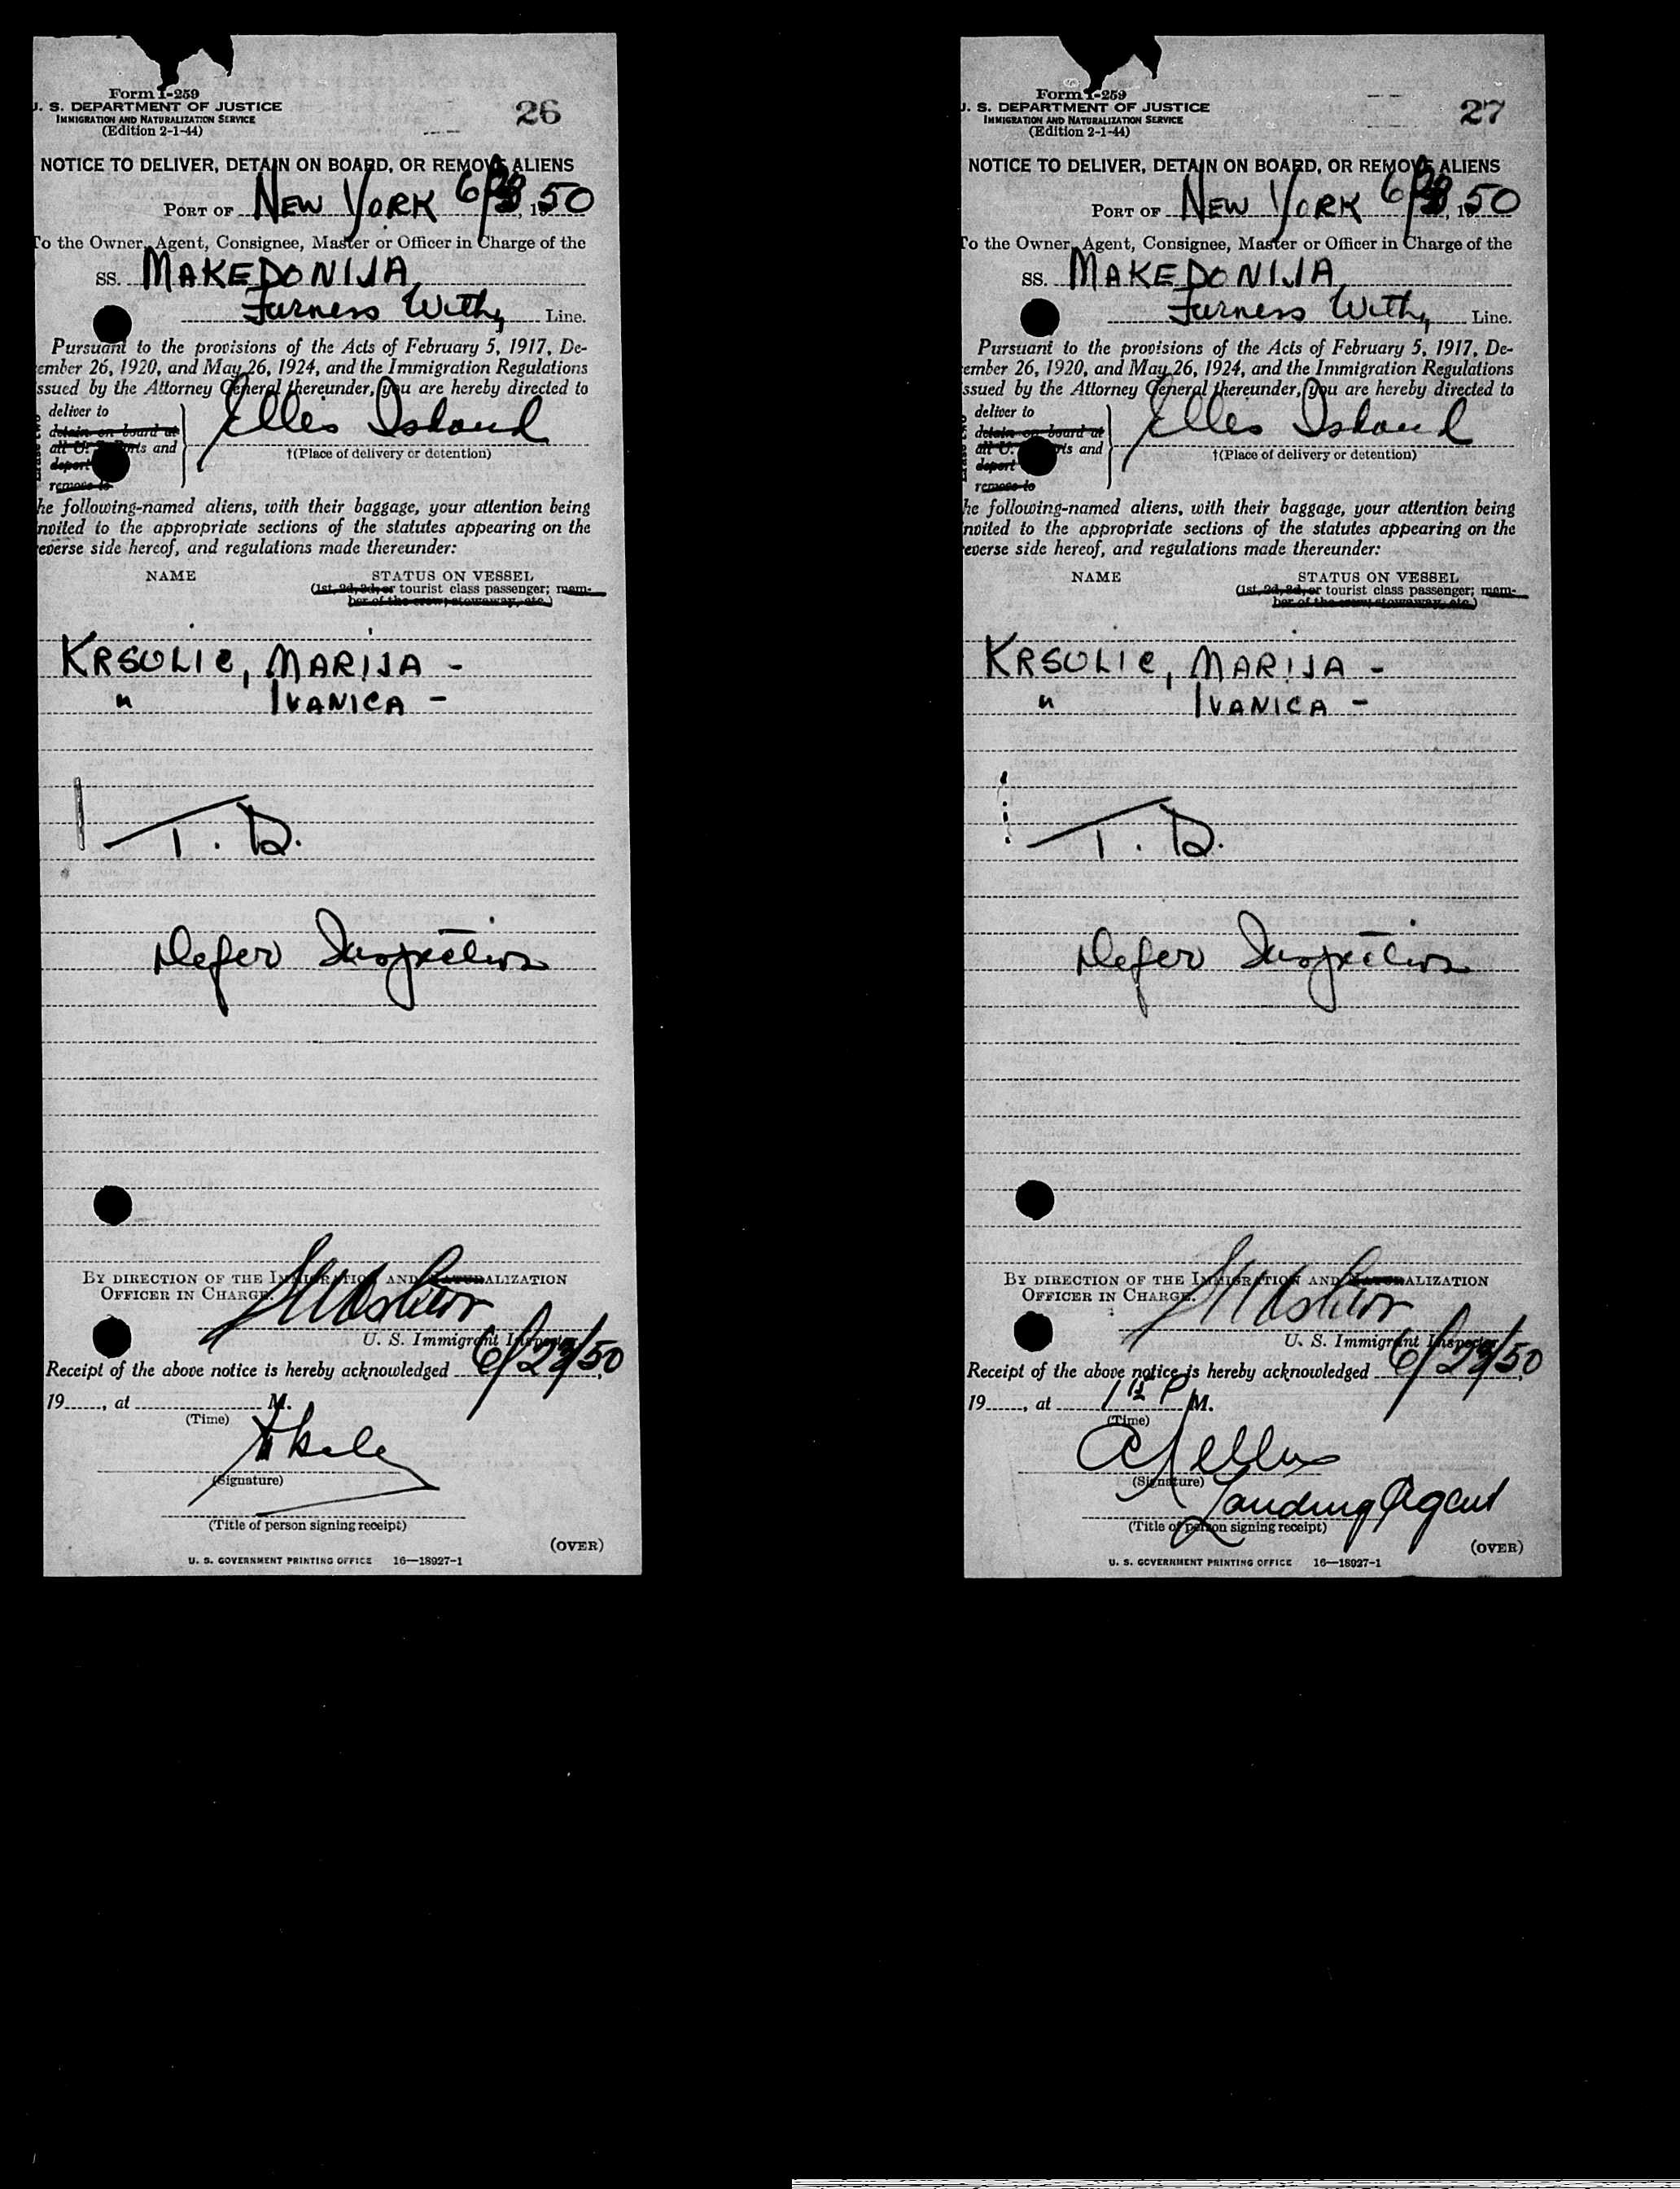 Form I-259
U. S. DEPARTMENT OF JUSTICE
IMMIGRATION AND NATURALIZATION SERVICE
(Edition 2-1-44)
26
NOTICE TO DELIVER, DETAIN ON BOARD, OR REMOVE ALIENS
PORT OF NEW YORK 6/ 50
To the Owner, Agent, Consignee, Master or Officer in Charge of the
SS. MAKEDONIJA
Furness Withy Line.
Pursuant to the provisions of the Acts of February 5, 1917, De-
ember 26, 1920, and May 26, 1924, and the Immigration Regulations
ssued by the Attorney General thereunder, you are hereby directed to
deliver to
detain on board at
all U. S. Ports and
deport
remove to
Ellis Island
†(Place of delivery or detention)
he following-named aliens, with their baggage, your attention being
nvited to the appropriate sections of the statutes appearing on the
everse side hereof, and regulations made thereunder:
NAME STATUS ON VESSEL
(1st, 2d, 3d, or tourist class passenger; mem-
ber of the crew; stowaway, etc.)
KRSULIC, MARIJA -
" IVANICA -
T. D.
Defer Inspection
BY DIRECTION OF THE IMMIGRATION AND NATURALIZATION
OFFICER IN CHARGE.
U. S. Immigrant Inspector
Receipt of the above notice is hereby acknowledged 6/23/50,
19___, at ___ M.
(Time)
(Signature)
(Title of person signing receipt)
(OVER)
U. S. GOVERNMENT PRINTING OFFICE 16—18927-1
Form I-259
U. S. DEPARTMENT OF JUSTICE
IMMIGRATION AND NATURALIZATION SERVICE
(Edition 2-1-44)
27
NOTICE TO DELIVER, DETAIN ON BOARD, OR REMOVE ALIENS
PORT OF NEW YORK 6/ 50
To the Owner, Agent, Consignee, Master or Officer in Charge of the
SS. MAKEDONIJA
Furness Withy Line.
Pursuant to the provisions of the Acts of February 5, 1917, De-
ember 26, 1920, and May 26, 1924, and the Immigration Regulations
ssued by the Attorney General thereunder, you are hereby directed to
deliver to
detain on board at
all U. S. Ports and
deport
remove to
Ellis Island
†(Place of delivery or detention)
he following-named aliens, with their baggage, your attention being
nvited to the appropriate sections of the statutes appearing on the
everse side hereof, and regulations made thereunder:
NAME STATUS ON VESSEL
(1st, 2d, 3d, or tourist class passenger; mem-
ber of the crew; stowaway, etc.)
KRSULIC, MARIJA -
" IVANICA -
T. D.
Defer Inspection
BY DIRECTION OF THE IMMIGRATION AND NATURALIZATION
OFFICER IN CHARGE.
U. S. Immigrant Inspector
Receipt of the above notice is hereby acknowledged 6/23/50,
19___, at P M.
(Time)
(Signature)
Landing Agent
(Title of person signing receipt)
(OVER)
U. S. GOVERNMENT PRINTING OFFICE 16—18927-1